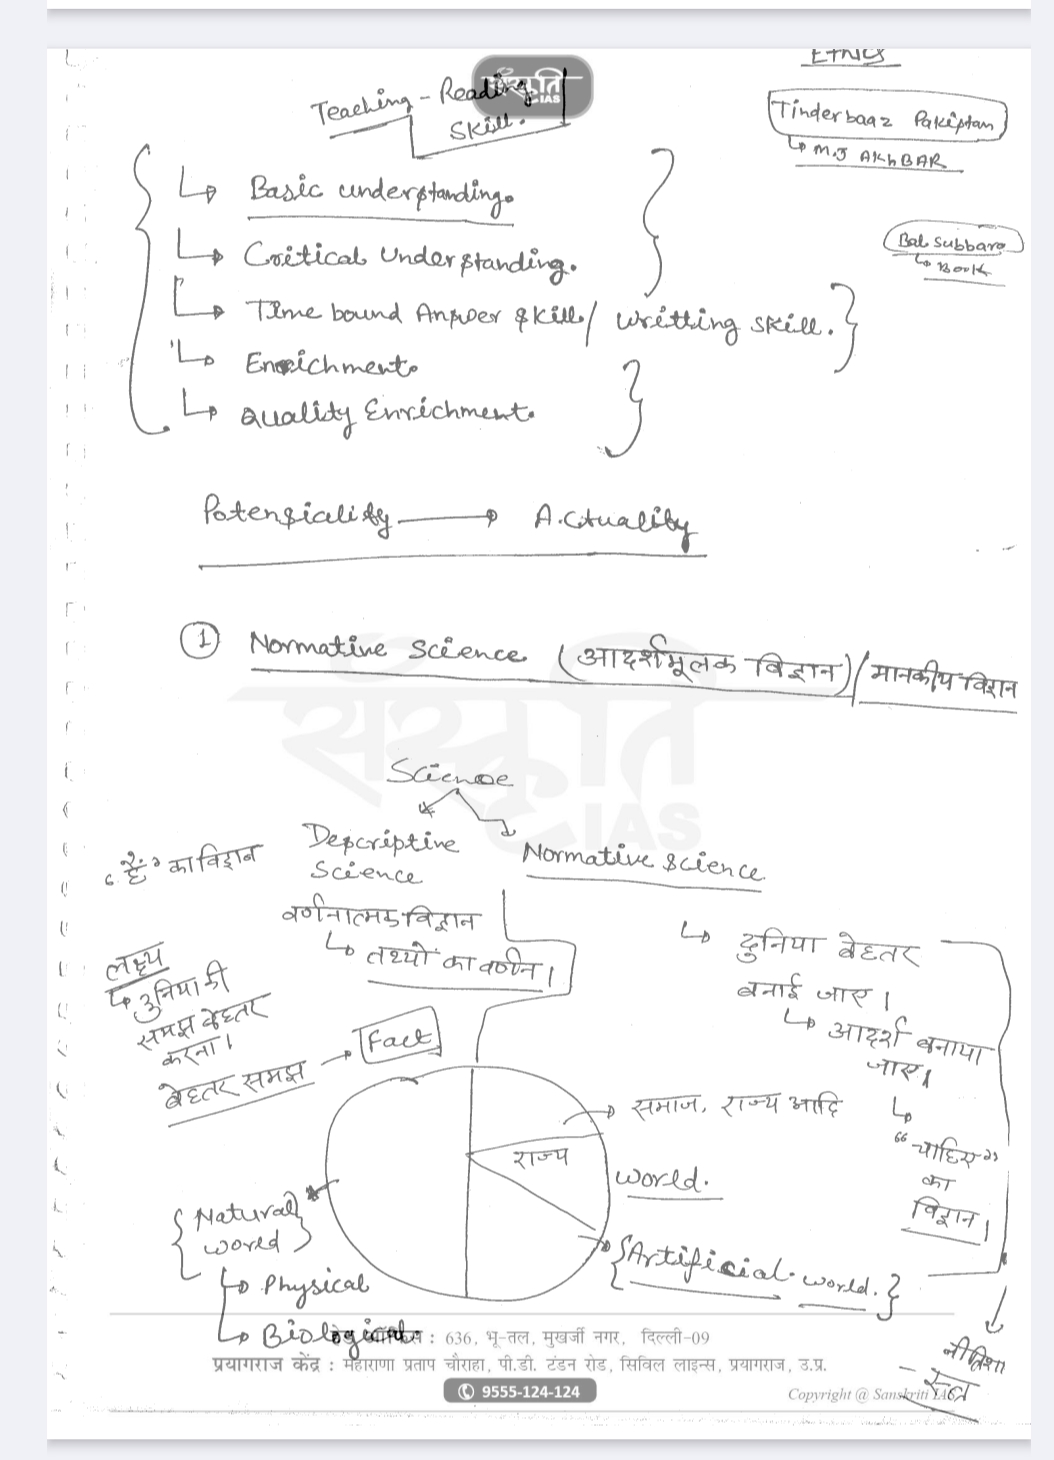 ETHICS
संस्कृति
IAS
Teaching - Reading
Skill.
Tinderbaaz Pakistan
M.J AKhBAR
Basic understanding.
Bal Subbarao
Book
Critical Understanding.
Time bound Answer skill / writting skill.
Enrichment.
Quality Enrichment.
Potensiality → A.ctuality
1 Normative Science (आदर्शमूलक विज्ञान) / मानकीय विज्ञान
संस्कृति
IAS
Science
Descriptive
Science
Normative science
"है" का विज्ञान
वर्णनात्मक विज्ञान
तथ्यों का वर्णन।
दुनिया बेहतर
बनाई जाए।
आदर्श बनाया
जाए।
"चाहिए"
का
विज्ञान।
लक्ष्य
दुनिया की
समझ बेहतर
करना।
बेहतर समझ → Fact
समाज, राज्य आदि
राज्य
World.
{Natural
World}
Physical
Biological
{Artificial world.}
नीतिशा
स्त्र
: 636, भू-तल, मुखर्जी नगर, दिल्ली-09
प्रयागराज केंद्र : महाराणा प्रताप चौराहा, पी.डी. टंडन रोड, सिविल लाइन्स, प्रयागराज, उ.प्र.
9555-124-124
Copyright @ Sanskriti IAS